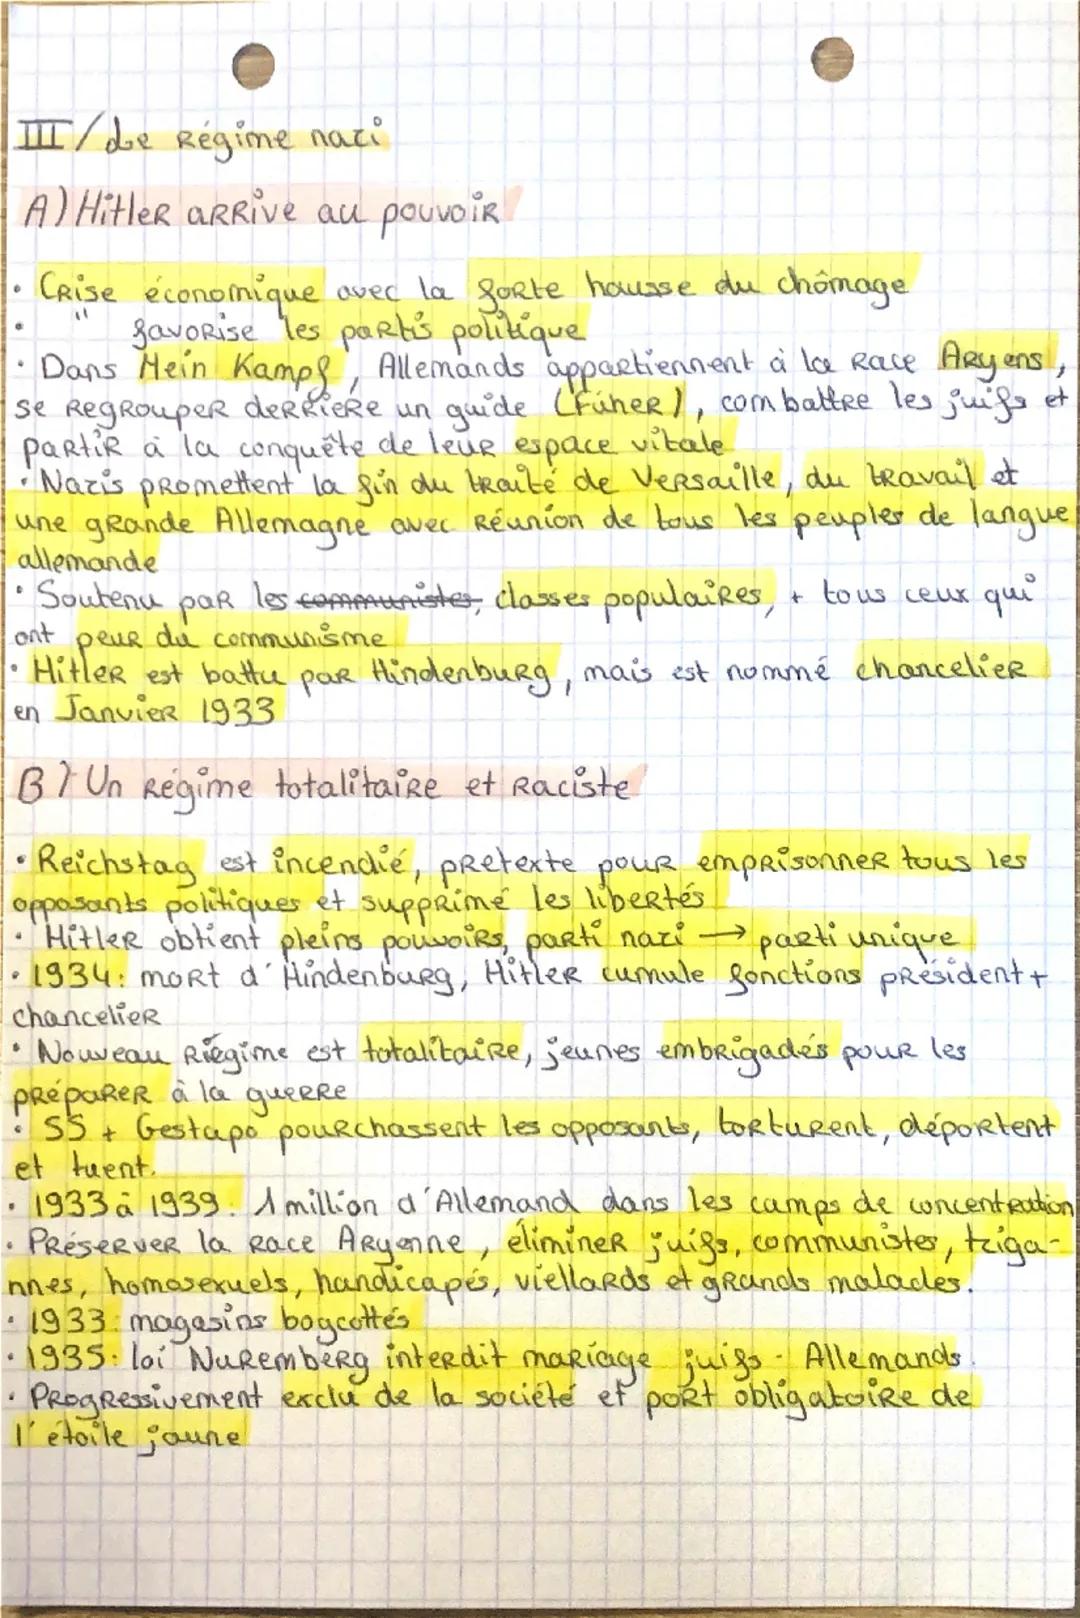 III/Le Régime nazi
A) Hitler arrive au pouvoir
• Crise économique avec la forte hausse du chômage
• " favorise les partis politique
• Dans Mein Kampf, Allemands appartiennent à la race Aryens,
se regrouper derrière un guide (Füher), combattre les juifs et
partir à la conquête de leur espace vitale
• Nazis promettent la fin du traité de Versaille, du travail et
une grande Allemagne avec réunion de tous les peuples de langue
allemande
• Soutenu par les communistes, classes populaires, + tous ceux qui
ont peur du communisme
• Hitler est battu par Hindenburg, mais est nommé chancelier
en Janvier 1933
B) Un régime totalitaire et raciste
• Reichstag est incendié, pretexte pour emprisonner tous les
opposants politiques et supprimé les libertés
• Hitler obtient pleins pouvoirs, parti nazi → parti unique
• 1934: mort d'Hindenburg, Hitler cumule fonctions président +
chancelier
• Nouveau Riégime est totalitaire, jeunes embrigadés pour les
préparer à la guerre
• SS + Gestapo pourchassent les opposants, torturent, déportent
et tuent.
• 1933 à 1939: 1 million d'Allemand dans les camps de concentration
• Préserver la race Aryenne, éliminer juifs, communistes, tziga-
nnes, homosexuels, handicapés, viellards et grands malades.
• 1933: magasins boycottés
• 1935: loi Nuremberg interdit mariage juifs - Allemands.
• Progressivement exclu de la société et port obligatoire de
l'étoile jaune